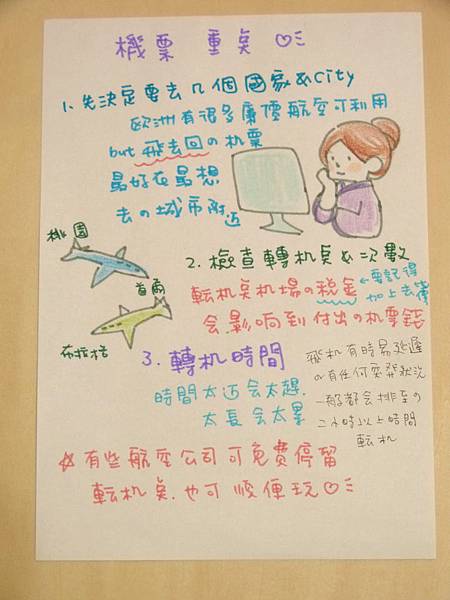 機票 重奌 ♡ミ
1.先決定要去几個國家&City
欧洲有很多廉價航空可利用
but 飛去回の机票
最好在最想
去の城市附近
桃園
首爾
布拉格
2.檢查轉机奌&次數
転机奌机場の稅金
←要記得
加上去算
会影响到付出の机票錢
3.轉机時間
時間太近会太趕.
太長会太累
飛机有時易延遲
or有任何突發狀況
一般都会排至少
二小時以上時間
転机
☆有些航空公司可免費停留
転机奌.也可順便玩♡ミ